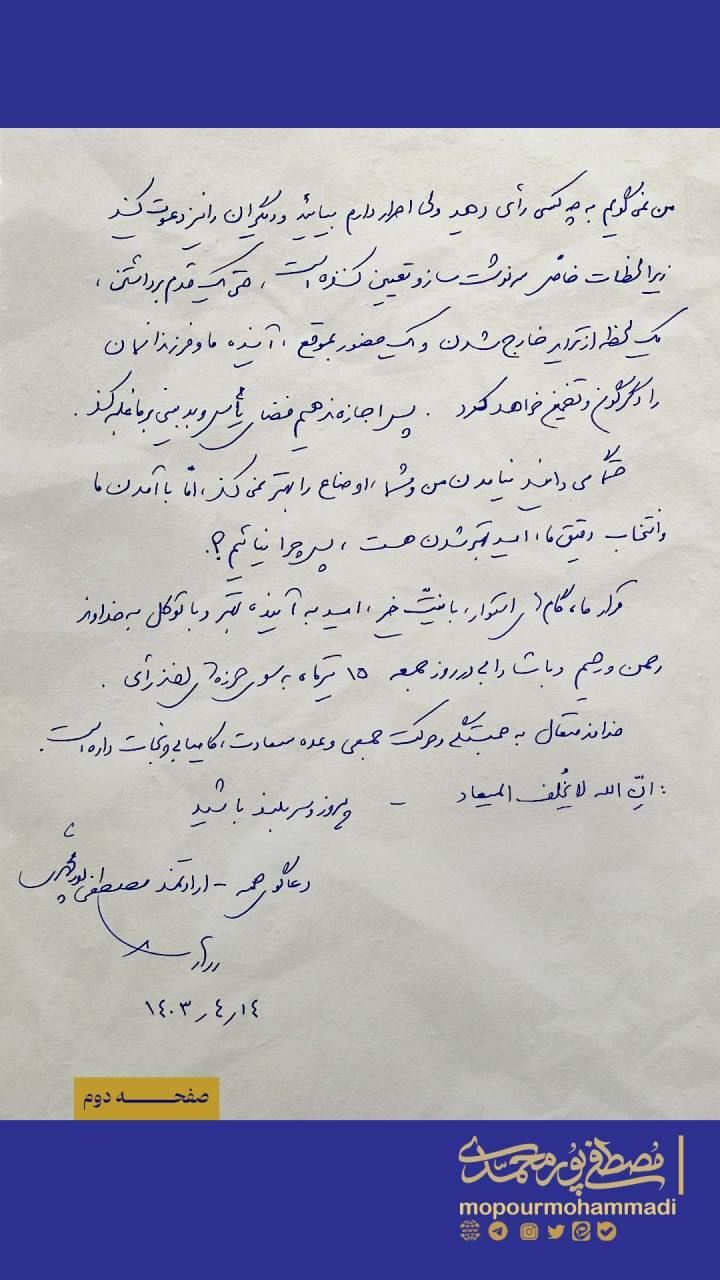 من نمی گویم به چه کسی رأی دهید ولی اصرار دارم بیایید و دیگران را نیز دعوت کنید
زیرا لحظات خاصّی سرنوشت ساز و تعیین کننده است ، حتی یک قدم برداشتن ،
یک لحظه از تردید خارج شدن و یک حضور بموقع ، آینده ما و فرزندانمان
را دگرگون و تضمین خواهد کرد . پس اجازه ندهیم فضای یأس و بدبینی بر ما غلبه کند .
حتماً می دانید نیامدن من و شما ، اوضاع را بهتر نمی کند ، امّا با آمدن ما
و انتخاب دقیق ما ، امید بهتر شدن هست ، پس چرا نیائیم ؟.
قرار ما ، گام های استوار ، با نیّت خیر ، امید به آینده بهتر و با توکل به خداوند
رحمن و رحیم و با شادابی در روز جمعه ۱۵ تیرماه به سوی حوزه های اخذ رأی .
خداوند متعال به همبستگی و حرکت جمعی وعده سعادت ، کامیابی و نجات داده است .
: انّ الله لا یُخلف المیعاد - پیروز و سربلند باشید
دعاگوی همه - ارادتمند مصطفی پورمحمدی
۱۴ ر ۴ ر ۱۴۰۳
صفحه دوم
مصطفی پورمحمدی
mopourmohammadi